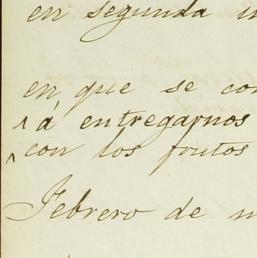 en segunda
en que se
á entregarnos
con los frutos
Febrero de